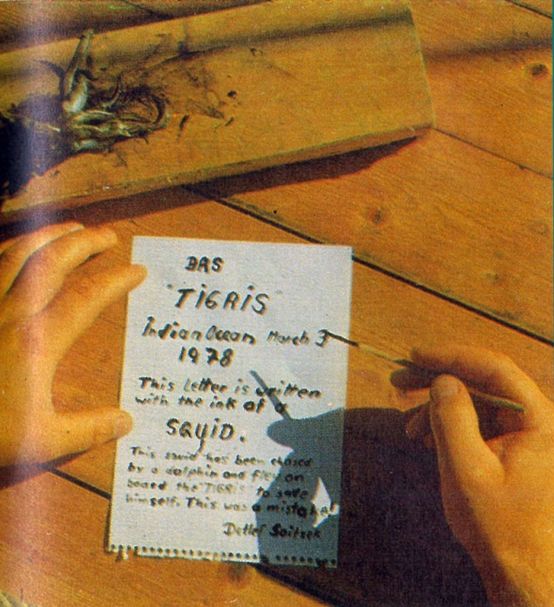 DAS
"TIGRIS"
Indian Ocean March 3
1978
This Letter is written
with the ink of a
SQUID.
This squid has been chased
by a dolphin and flew on
board the "TIGRIS" to safe
himself. This was a mistake!
Detlef Soitzek